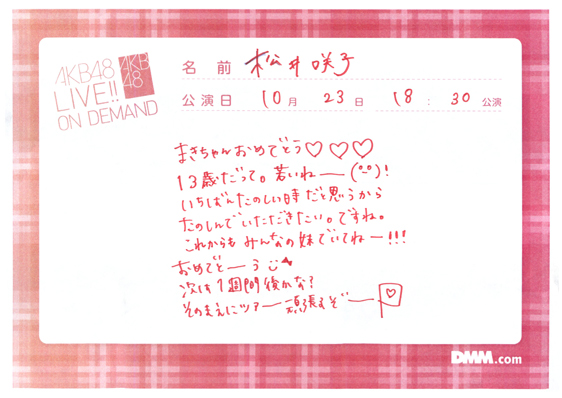 AKB48
LIVE!!
ON DEMAND
AKB
48
名前 松井咲子
公演日 10月 23日 18:30公演
まきちゃんおめでとう♡♡♡
13歳だって。若いねー(°-°)!
いちばんたのしい時だと思うから
たのしんでいただきたい。ですね。
これからもみんなの妹でいてねー!!!
おめでとーう
次は1週間後かな?
そのまえにツアー頑張るぞー
DMM.com